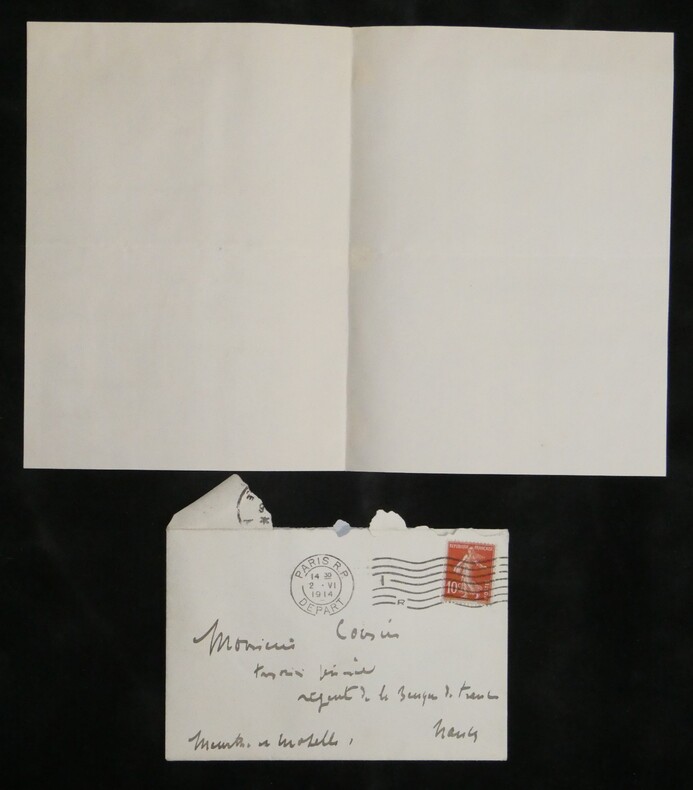 PARIS R.P.
14 30
2 - VI
1914
DEPART
R
REPUBLIQUE FRANCAISE
10c
Monsieur Cousin
trésorier général
régent de la Banque de France
Nancy
Meurthe et Moselle.